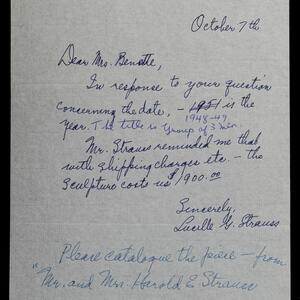 October 7th
Dear Mrs. Benette,
In response to your question
concerning the date, – 1951 is the
1948-49
year. The title is Group of 3 men
Mr. Strauss reminded me that
with shipping charges etc. – the
sculpture costs us $1900.00
Sincerely,
Lucille G. Strauss
Please catalogue the piece – from
"Mr. and Mrs. Harold E. Strauss